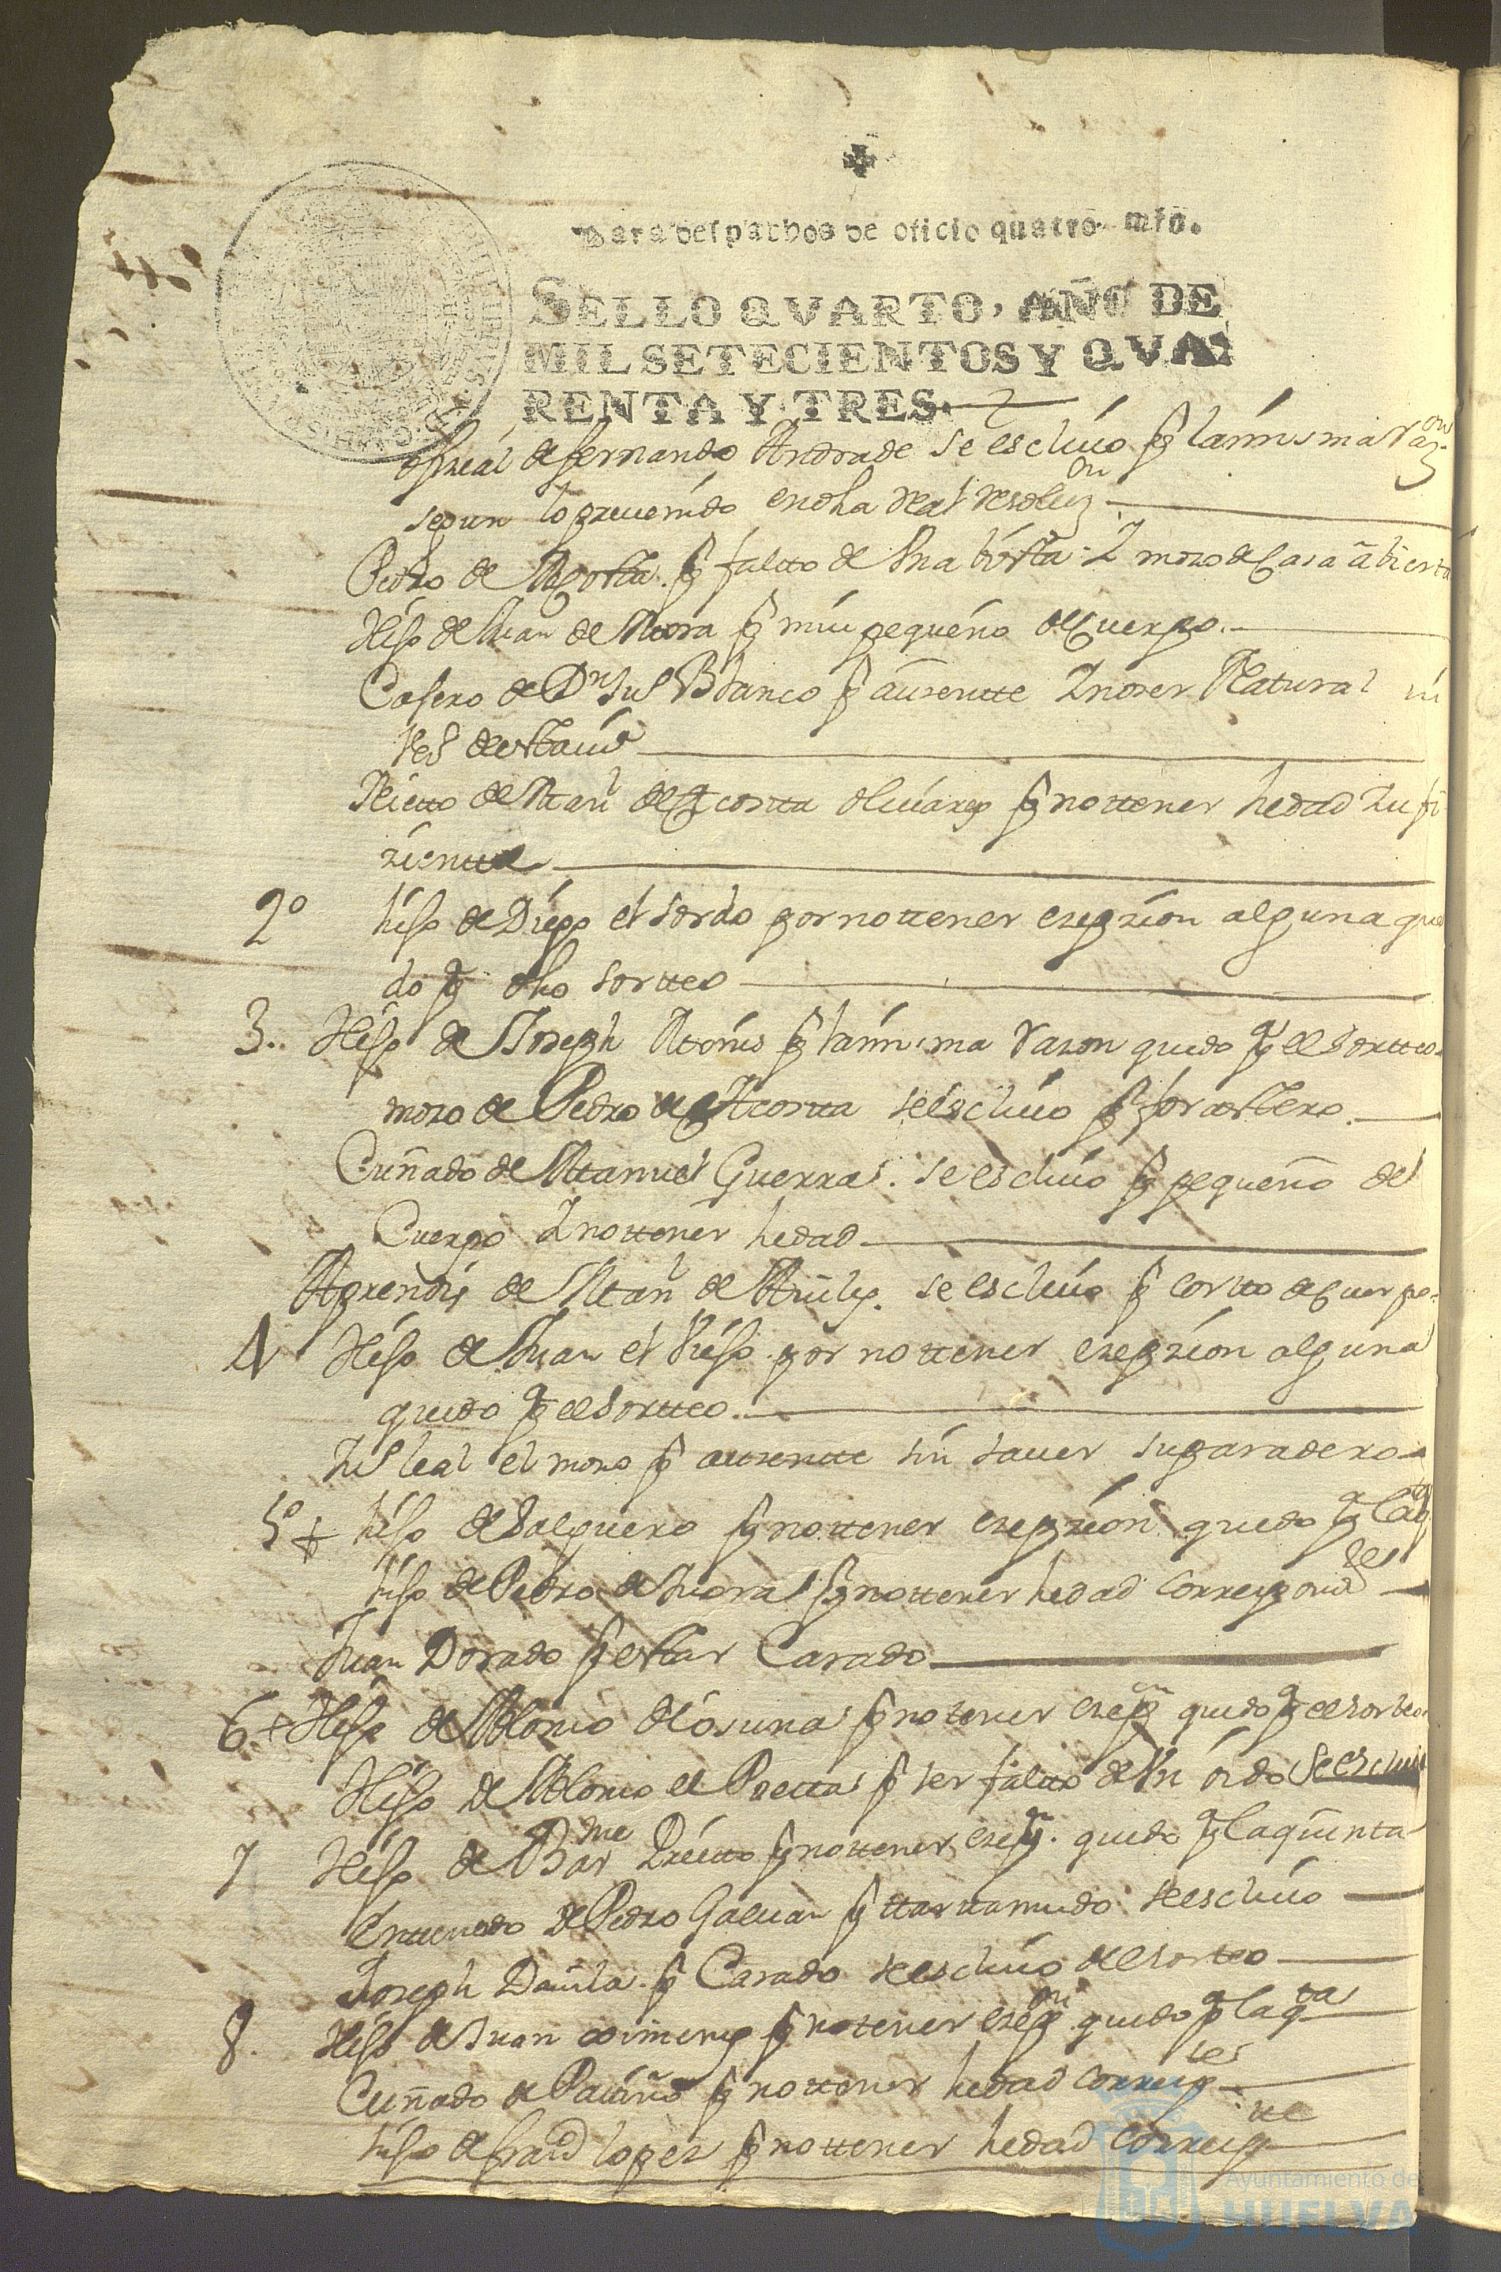 Para despachos de oficio quatro mrs.
SELLO QVARTO, AÑO DE
MIL SETECIENTOS Y QVA-
RENTA Y TRES.
ofizial de fernando Andrade se escluio pr la misma razon
segun lo prevenido en dha Real resoluzn
Pedro de Acosta. pr faltto de Una vista = Y mozo de Casa abierta
Hijo de Juan de Mora pr mui pequeño de Cuerpo.
Casero de Dn Blanco pr ausentte Y no ser Natural ni
de esta
Nieto de Manl de Acosta olivares pr no ttener hedad sufi
zientte
2º hijo de Diego el sordo por no ttener exepzion alguna que
do pa dho sortteo
3. Hijo de Joseph pr la misma razon quedo pa el sortteo.
mozo de Pedro de Acosta se escluio pr forastero.
Cuñado de Manuel Guerra. se escluio pr pequeño de
Cuerpo Y no ttener hedad
Aprendis de Manl de se escluio pr cortto de Cuerpo.
4 Hijo de Juan el Viejo por no ttener exepzion alguna
quedo pa el sortteo.
leal el mozo pr ausentte sin saver su paradero
5º + hijo de Salguero pr no ttener exepzion quedo pa la qta
hijo de Pedro de Mora pr no ttener hedad correspond
Juan Dorado pr estar Casado
6 + Hijo de Alonso de osuna pr no tener exepn quedo pa el sorteo
Hijo de Alonso el Poetta pr ser faltto de Un oido se escluio
7 Hijo de Barme Prietto pr no ttener exepn. quedo pa la quinta
Enttenado de Pedro Galvan pr ttarttamudo se escluio
Joseph Davila. pr Casado se escluio del sorteo
8. Hijo de Juan ximenez pr no tener exepn quedo pa la qta
Cuñado de Patiño pr no ttener hedad corresp
hijo de franco lopez pr no ttener hedad corresp
Ayuntamiento de
HUELVA